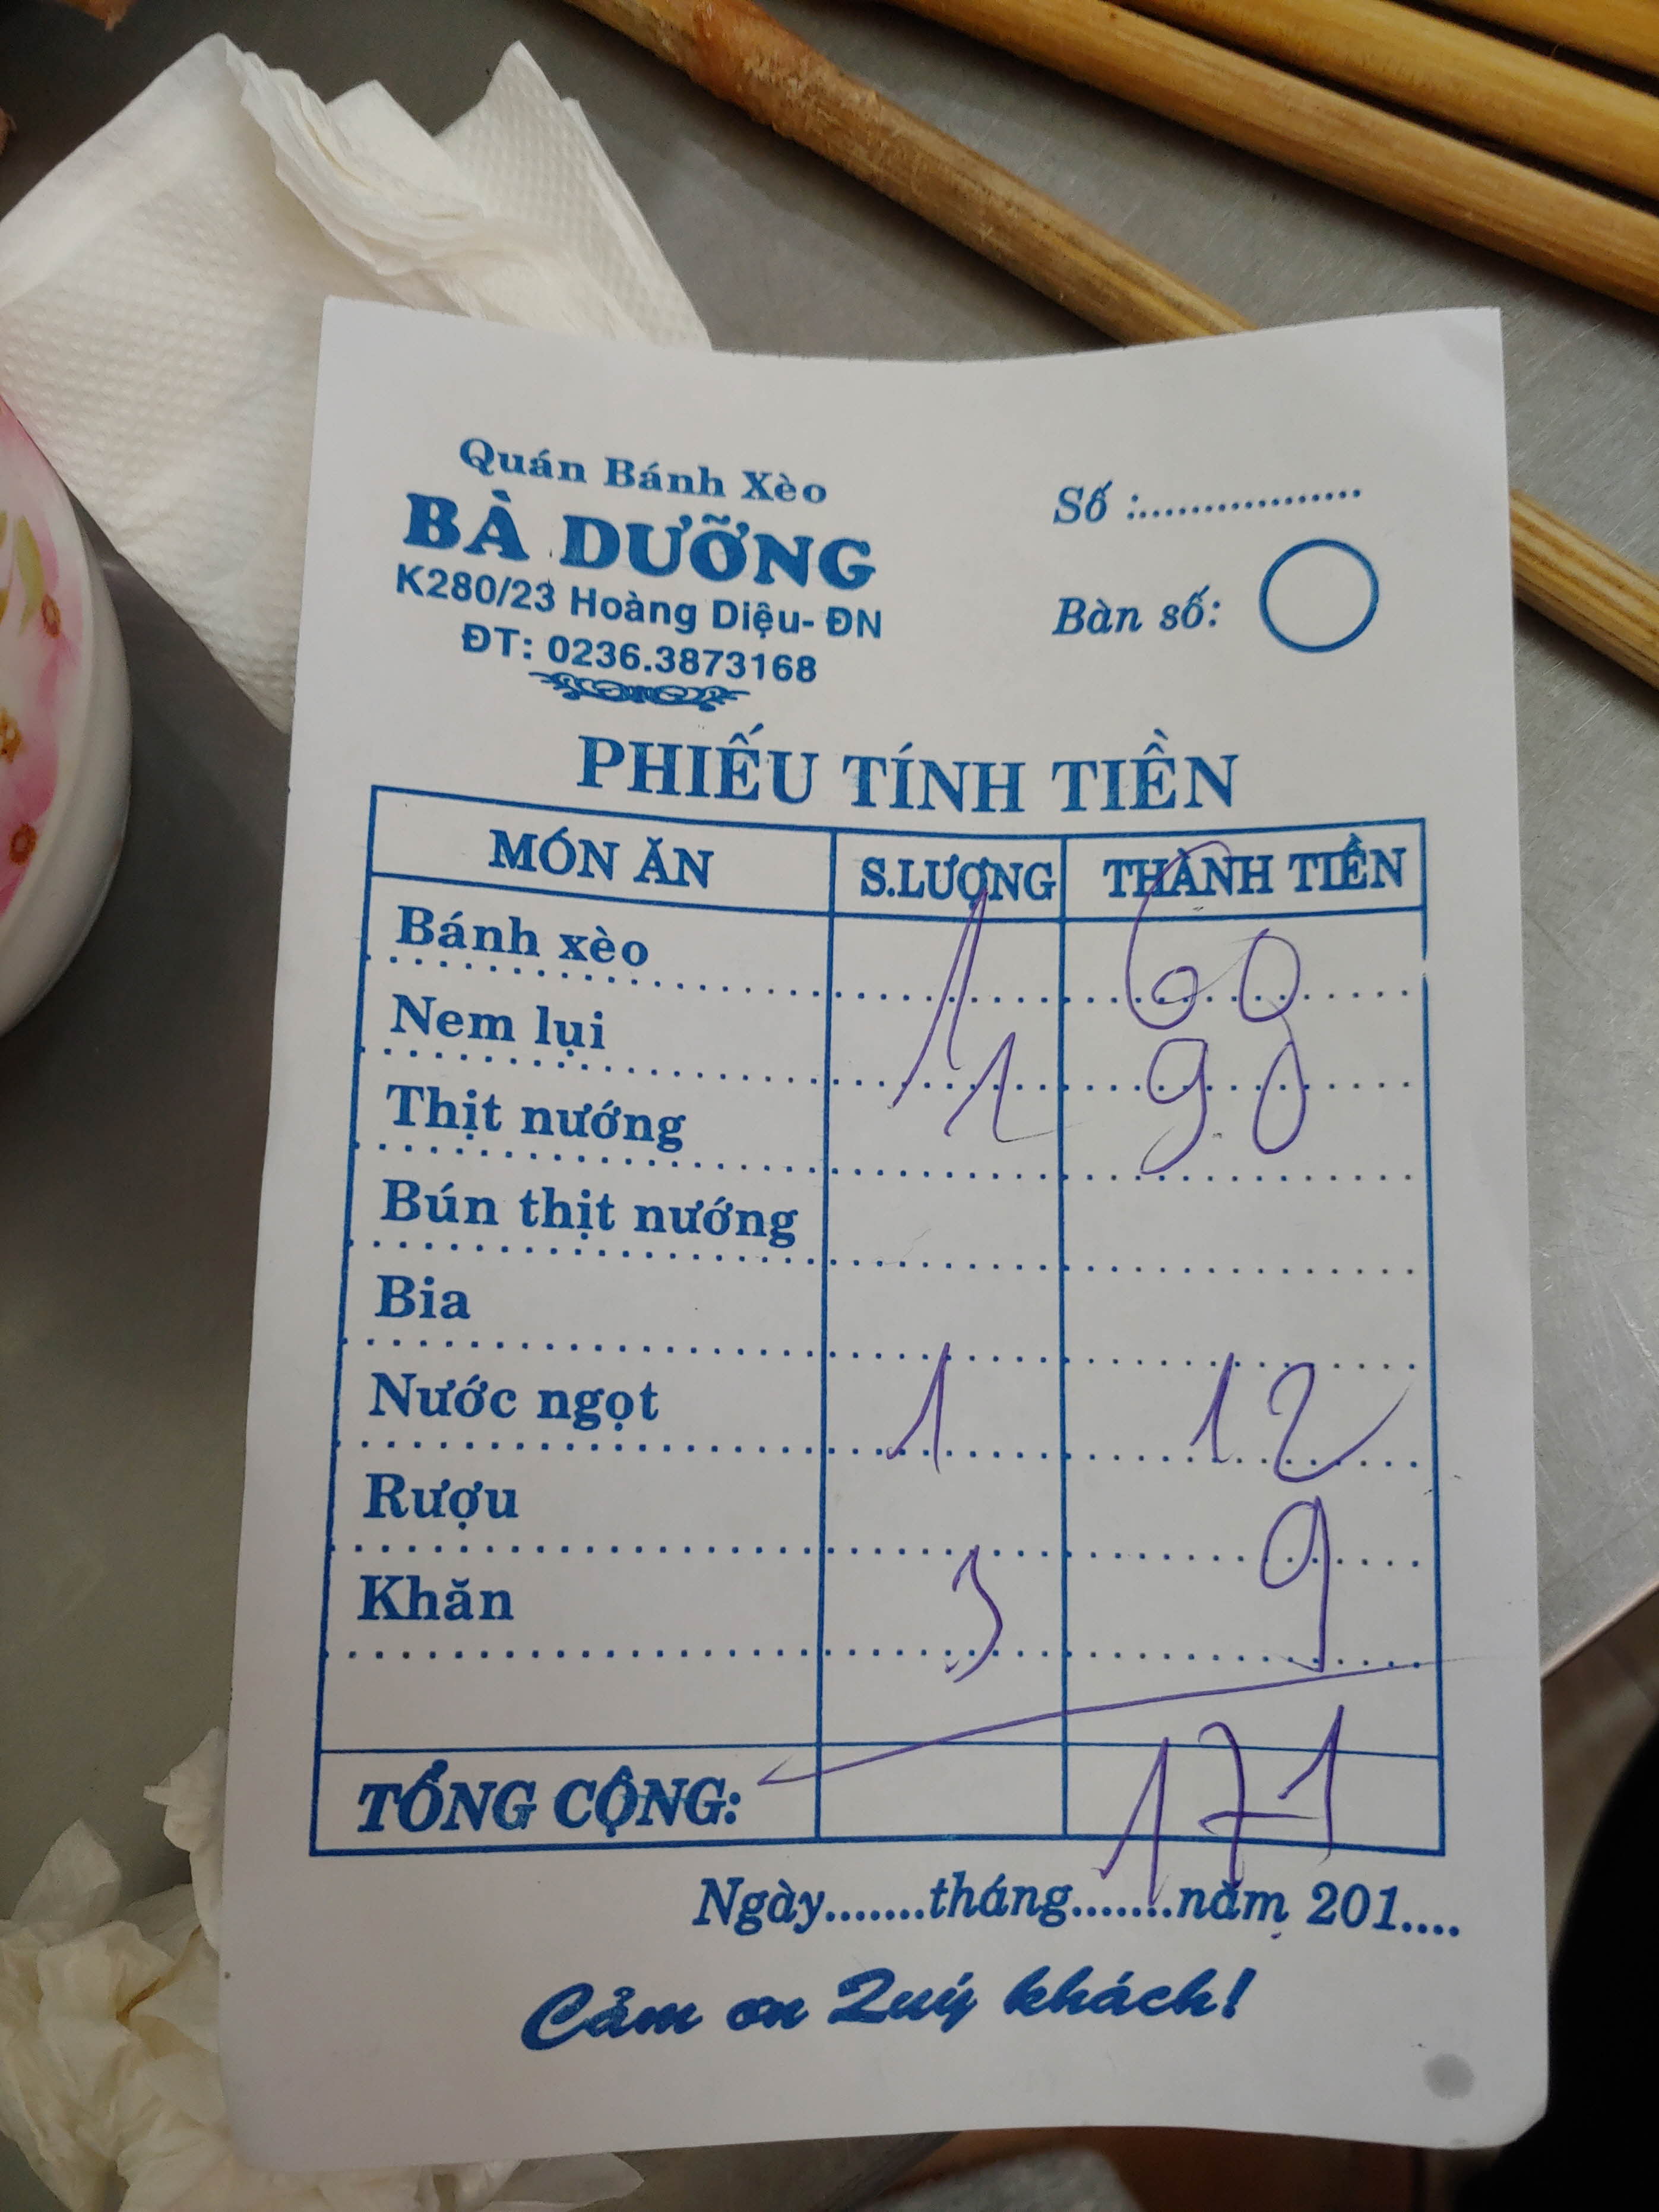 Quán Bánh Xèo
BÀ DƯỠNG
K280/23 Hoàng Diệu- ĐN
ĐT: 0236.3873168
Số :.................
Bàn số:
PHIẾU TÍNH TIỀN
MÓN ĂN S.LƯỢNG THÀNH TIỀN
Bánh xèo 1 60
Nem lụi 12 90
Thịt nướng
Bún thịt nướng
Bia
Nước ngọt 1 12
Rượu
Khăn 3 9
TỔNG CỘNG: 171
Ngày.......tháng.......năm 201....
Cảm ơn Quý khách!